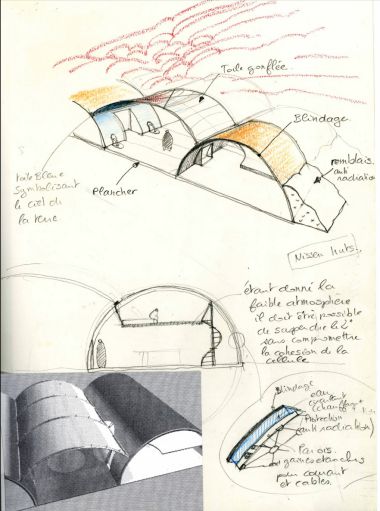 Toile gonflée
Blindage
remblais.
anti
radiation
Toile Bleue
symbolisant
le ciel de
la terre
Plancher
Nissen huts.
étant donné la
faible atmosphère
il doit être possible
de suspendre le 2°
sans compromettre
la cohésion de la
cellule
Blindage
eau
circulant
(chauffage
Protection
anti radiation)
Parois.
gaines étanches
pour courant
et cables.